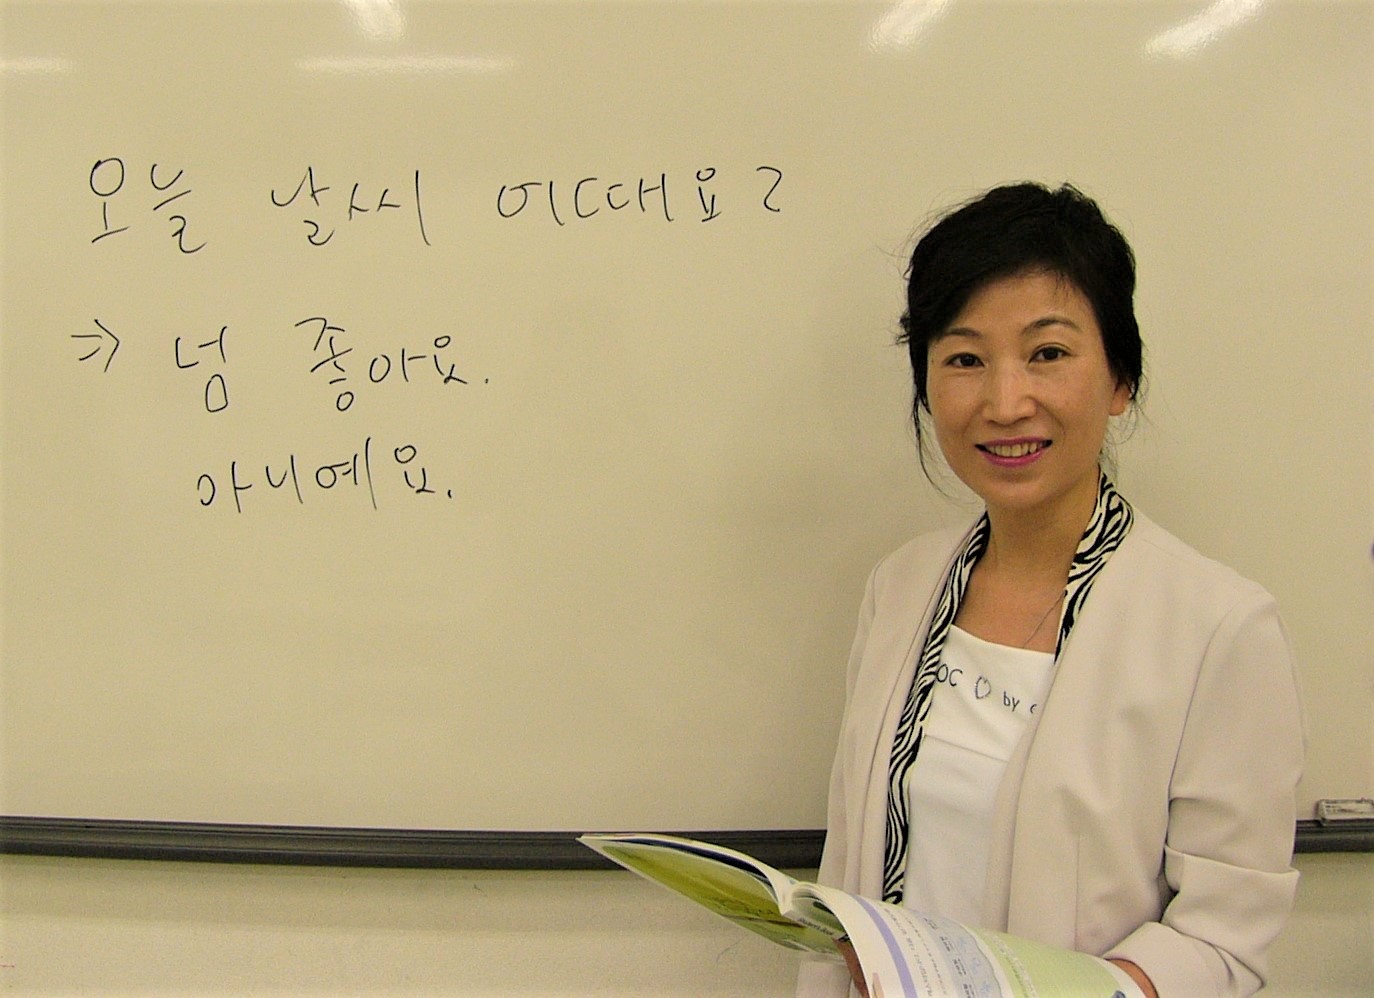 오늘 날씨 어때요?
⇒ 넘 좋아요.
아니예요.
OC ♡ by